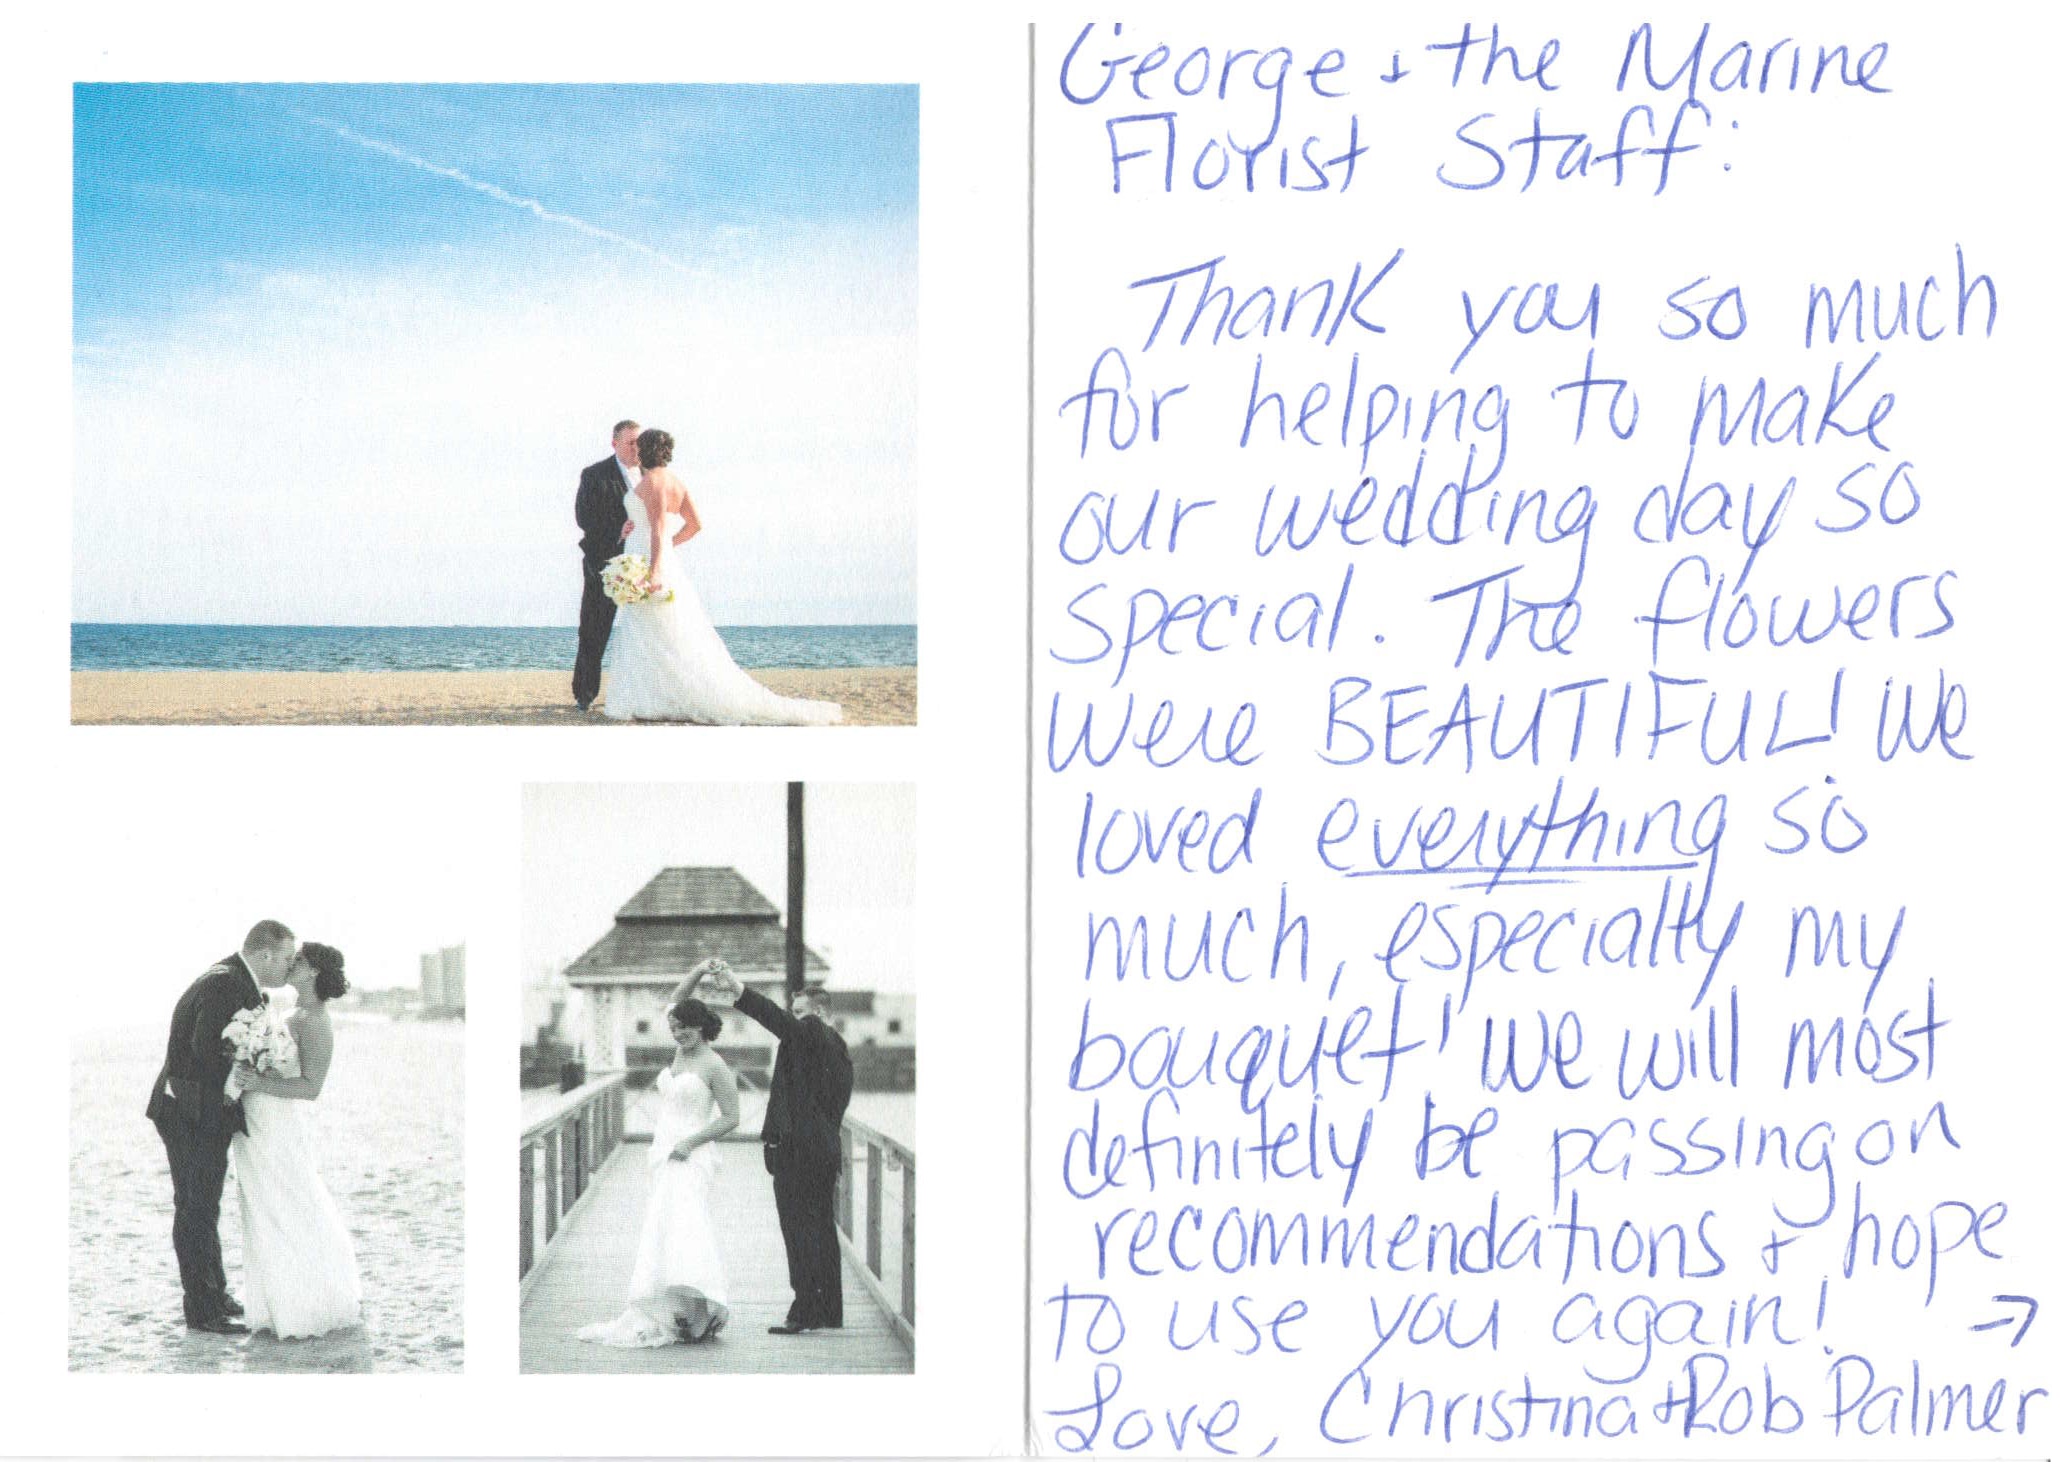 George + the Marine
Florist Staff:
Thank you so much
for helping to make
our wedding day so
special. The flowers
were BEAUTIFUL! We
loved everything so
much, especially my
bouquet! We will most
definitely be passing on
recommendations + hope
to use you again! →
Love, Christina + Rob Palmer